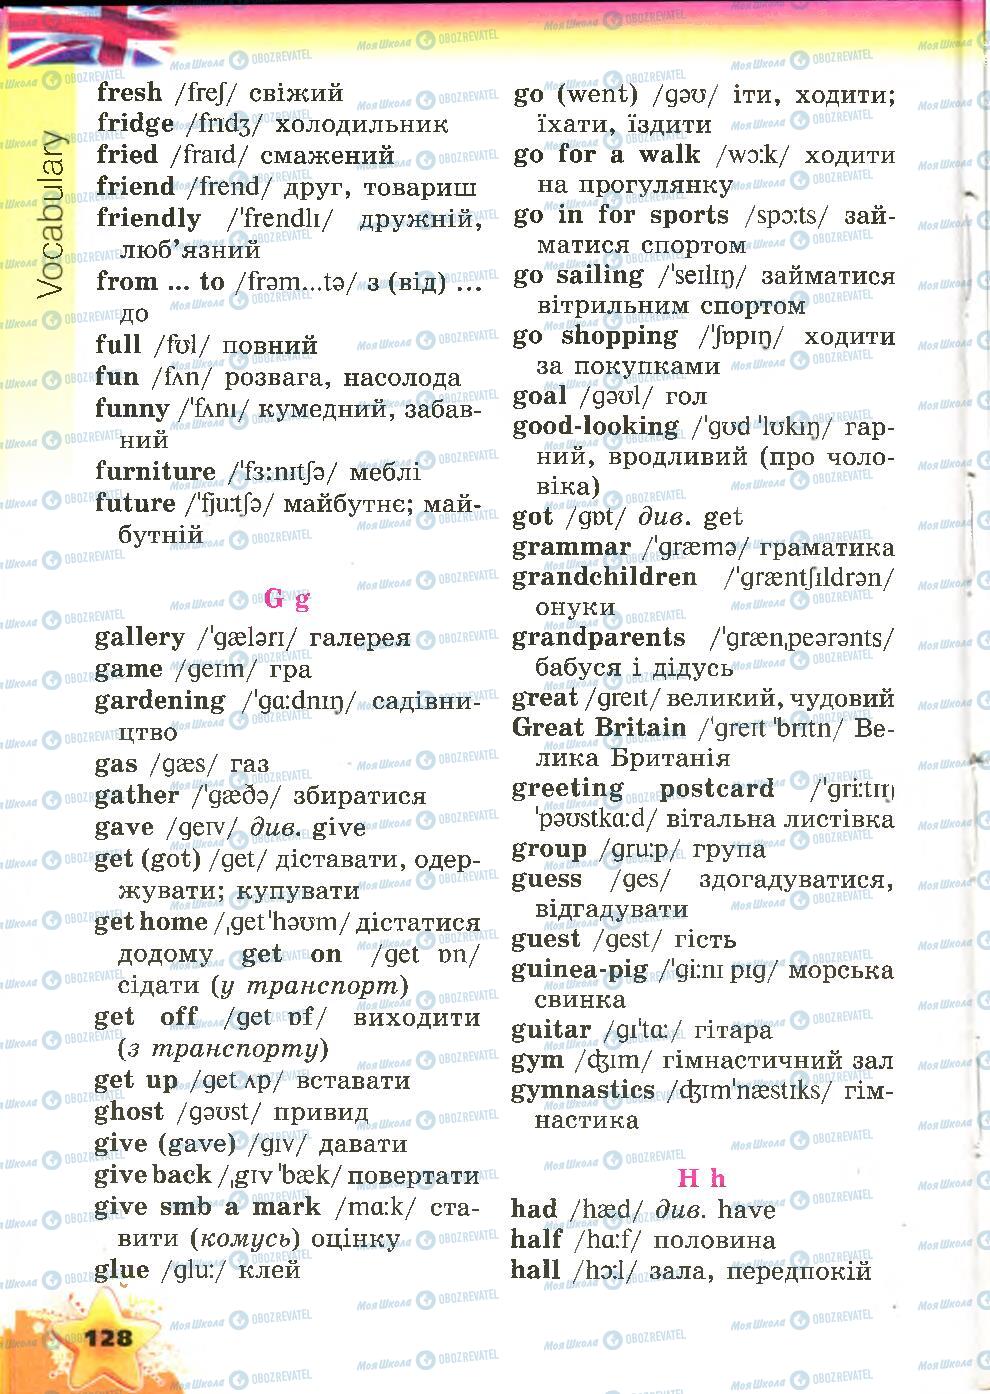 Vocabulary
fresh /freʃ/ свіжий
fridge /frɪdʒ/ холодильник
fried /fraɪd/ смажений
friend /frend/ друг, товариш
friendly /'frendlɪ/ дружній,
люб’язний
from ... to /frəm...tə/ з (від) ...
до
full /fʊl/ повний
fun /fʌn/ розвага, насолода
funny /'fʌnɪ/ кумедний, забав-
ний
furniture /'fɜ:nɪtʃə/ меблі
future /'fju:tʃə/ майбутнє; май-
бутній
G g
gallery /'gælərɪ/ галерея
game /geɪm/ гра
gardening /'gɑ:dnɪŋ/ садівни-
цтво
gas /gæs/ газ
gather /'gæðə/ збиратися
gave /geɪv/ див. give
get (got) /get/ діставати, одер-
жувати; купувати
get home /ˌget'həʊm/ дістатися
додому get on /get ɒn/
сідати (у транспорт)
get off /get ɒf/ виходити
(з транспорту)
get up /get ʌp/ вставати
ghost /gəʊst/ привид
give (gave) /gɪv/ давати
give back /ˌgɪv 'bæk/ повертати
give smb a mark /mɑ:k/ ста-
вити (комусь) оцінку
glue /glu:/ клей
go (went) /gəʊ/ іти, ходити;
їхати, їздити
go for a walk /wɔ:k/ ходити
на прогулянку
go in for sports /spɔ:ts/ зай-
матися спортом
go sailing /'seɪlɪŋ/ займатися
вітрильним спортом
go shopping /'ʃɒpɪŋ/ ходити
за покупками
goal /gəʊl/ гол
good-looking /'gʊd 'lʊkɪŋ/ гар-
ний, вродливий (про чоло-
віка)
got /gɒt/ див. get
grammar /'græmə/ граматика
grandchildren /'græntʃɪldrən/
онуки
grandparents /'græn,peərənts/
бабуся і дідусь
great /greɪt/ великий, чудовий
Great Britain /'greɪt 'brɪtn/ Ве-
лика Британія
greeting postcard /'gri:tɪŋ
'pəʊstkɑ:d/ вітальна листівка
group /gru:p/ група
guess /ges/ здогадуватися,
відгадувати
guest /gest/ гість
guinea-pig /'gi:nɪ pɪg/ морська
свинка
guitar /gɪ'tɑ:/ гітара
gym /dʒɪm/ гімнастичний зал
gymnastics /dʒɪm'næstɪks/ гім-
настика
H h
had /hæd/ див. have
half /hɑ:f/ половина
hall /hɔ:l/ зала, передпокій
128